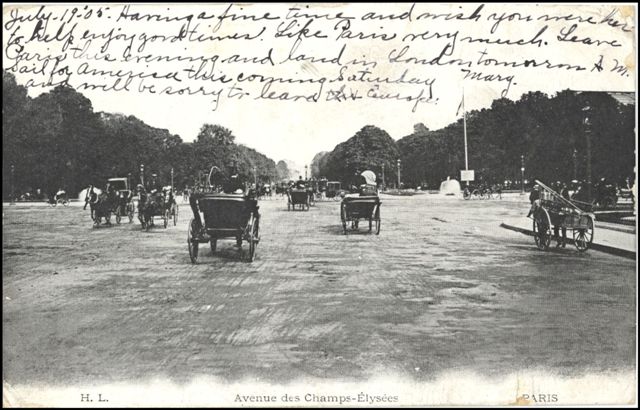 July-19-05. Having a fine time and wish you were here
to help enjoy good times. Like Paris very much. Leave
Paris this evening and land in London tomorrow A. M.
Sail for America this coming Saturday
and will be sorry to leave Europe.
Mary.
H. L.
Avenue des Champs-Élysées
PARIS